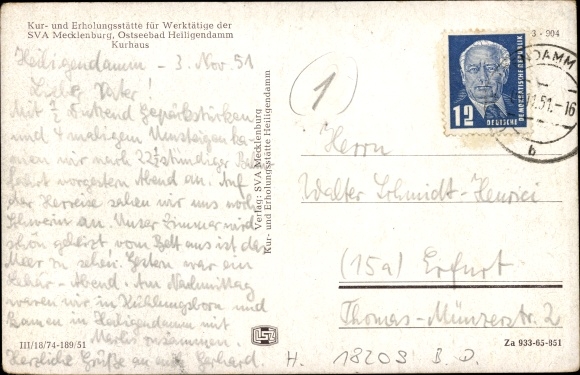 Kur- und Erholungsstätte für Werktätige der
SVA Mecklenburg, Ostseebad Heiligendamm
Kurhaus
Heiligendamm - 3. Nov. 51
Lieber Vater!
Mit ½ Dutzend Gepäckstücken
und 4 maligem Umsteigen ka-
men wir nach 22½stündiger Bahn-
fahrt vorgestern Abend an. Auf
der Herreise sahen wir uns noch
Schwerin an. Unser Zimmer wird
schön geheizt vom Bett aus ist das
Meer zu sehen. Gestern war ein
Abend. Am Nachmittag
waren wir in Kühlungsborn und
kamen in Heiligendamm mit
zusammen.
Herzliche Grüße an euch Gerhard.
III/18/74-189/51
Verlag: SVA Mecklenburg
Kur- und Erholungsstätte Heiligendamm
1
3 - 904
DEUTSCHE
DEMOKRATISCHE REPUBLIK
12
DAMM
11.51.-16
b
Herrn
Walter Schmidt-Henrici
(15a) Erfurt
Thomas-Münzerstr. 2
Za 933-65-851
H. 18203 B. D.